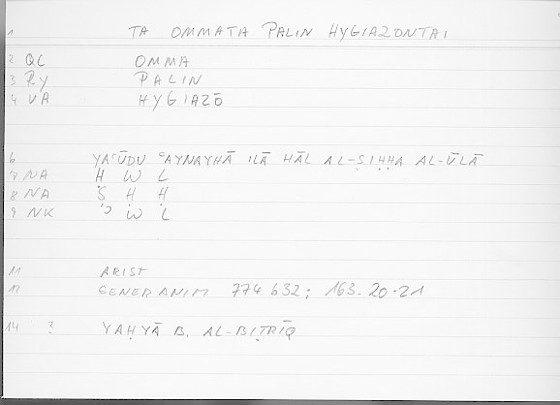 1 TA OMMATA PALIN HYGIAZONTAI
2 QC OMMA
3 RY PALIN
4 VA HYGIAZŌ
6 YAʿŪDU ʿAYNAYHĀ ILĀ ḤĀL AL-ṢIḤḤA AL-ŪLĀ
7 NA Ḥ W L
8 NA Ṣ Ḥ Ḥ
9 NK ʾ W L
11 ARIST
12 GENER ANIM 774 b32; 163.20-21
14 ? YAḤYĀ B. AL-BIṬRĪQ